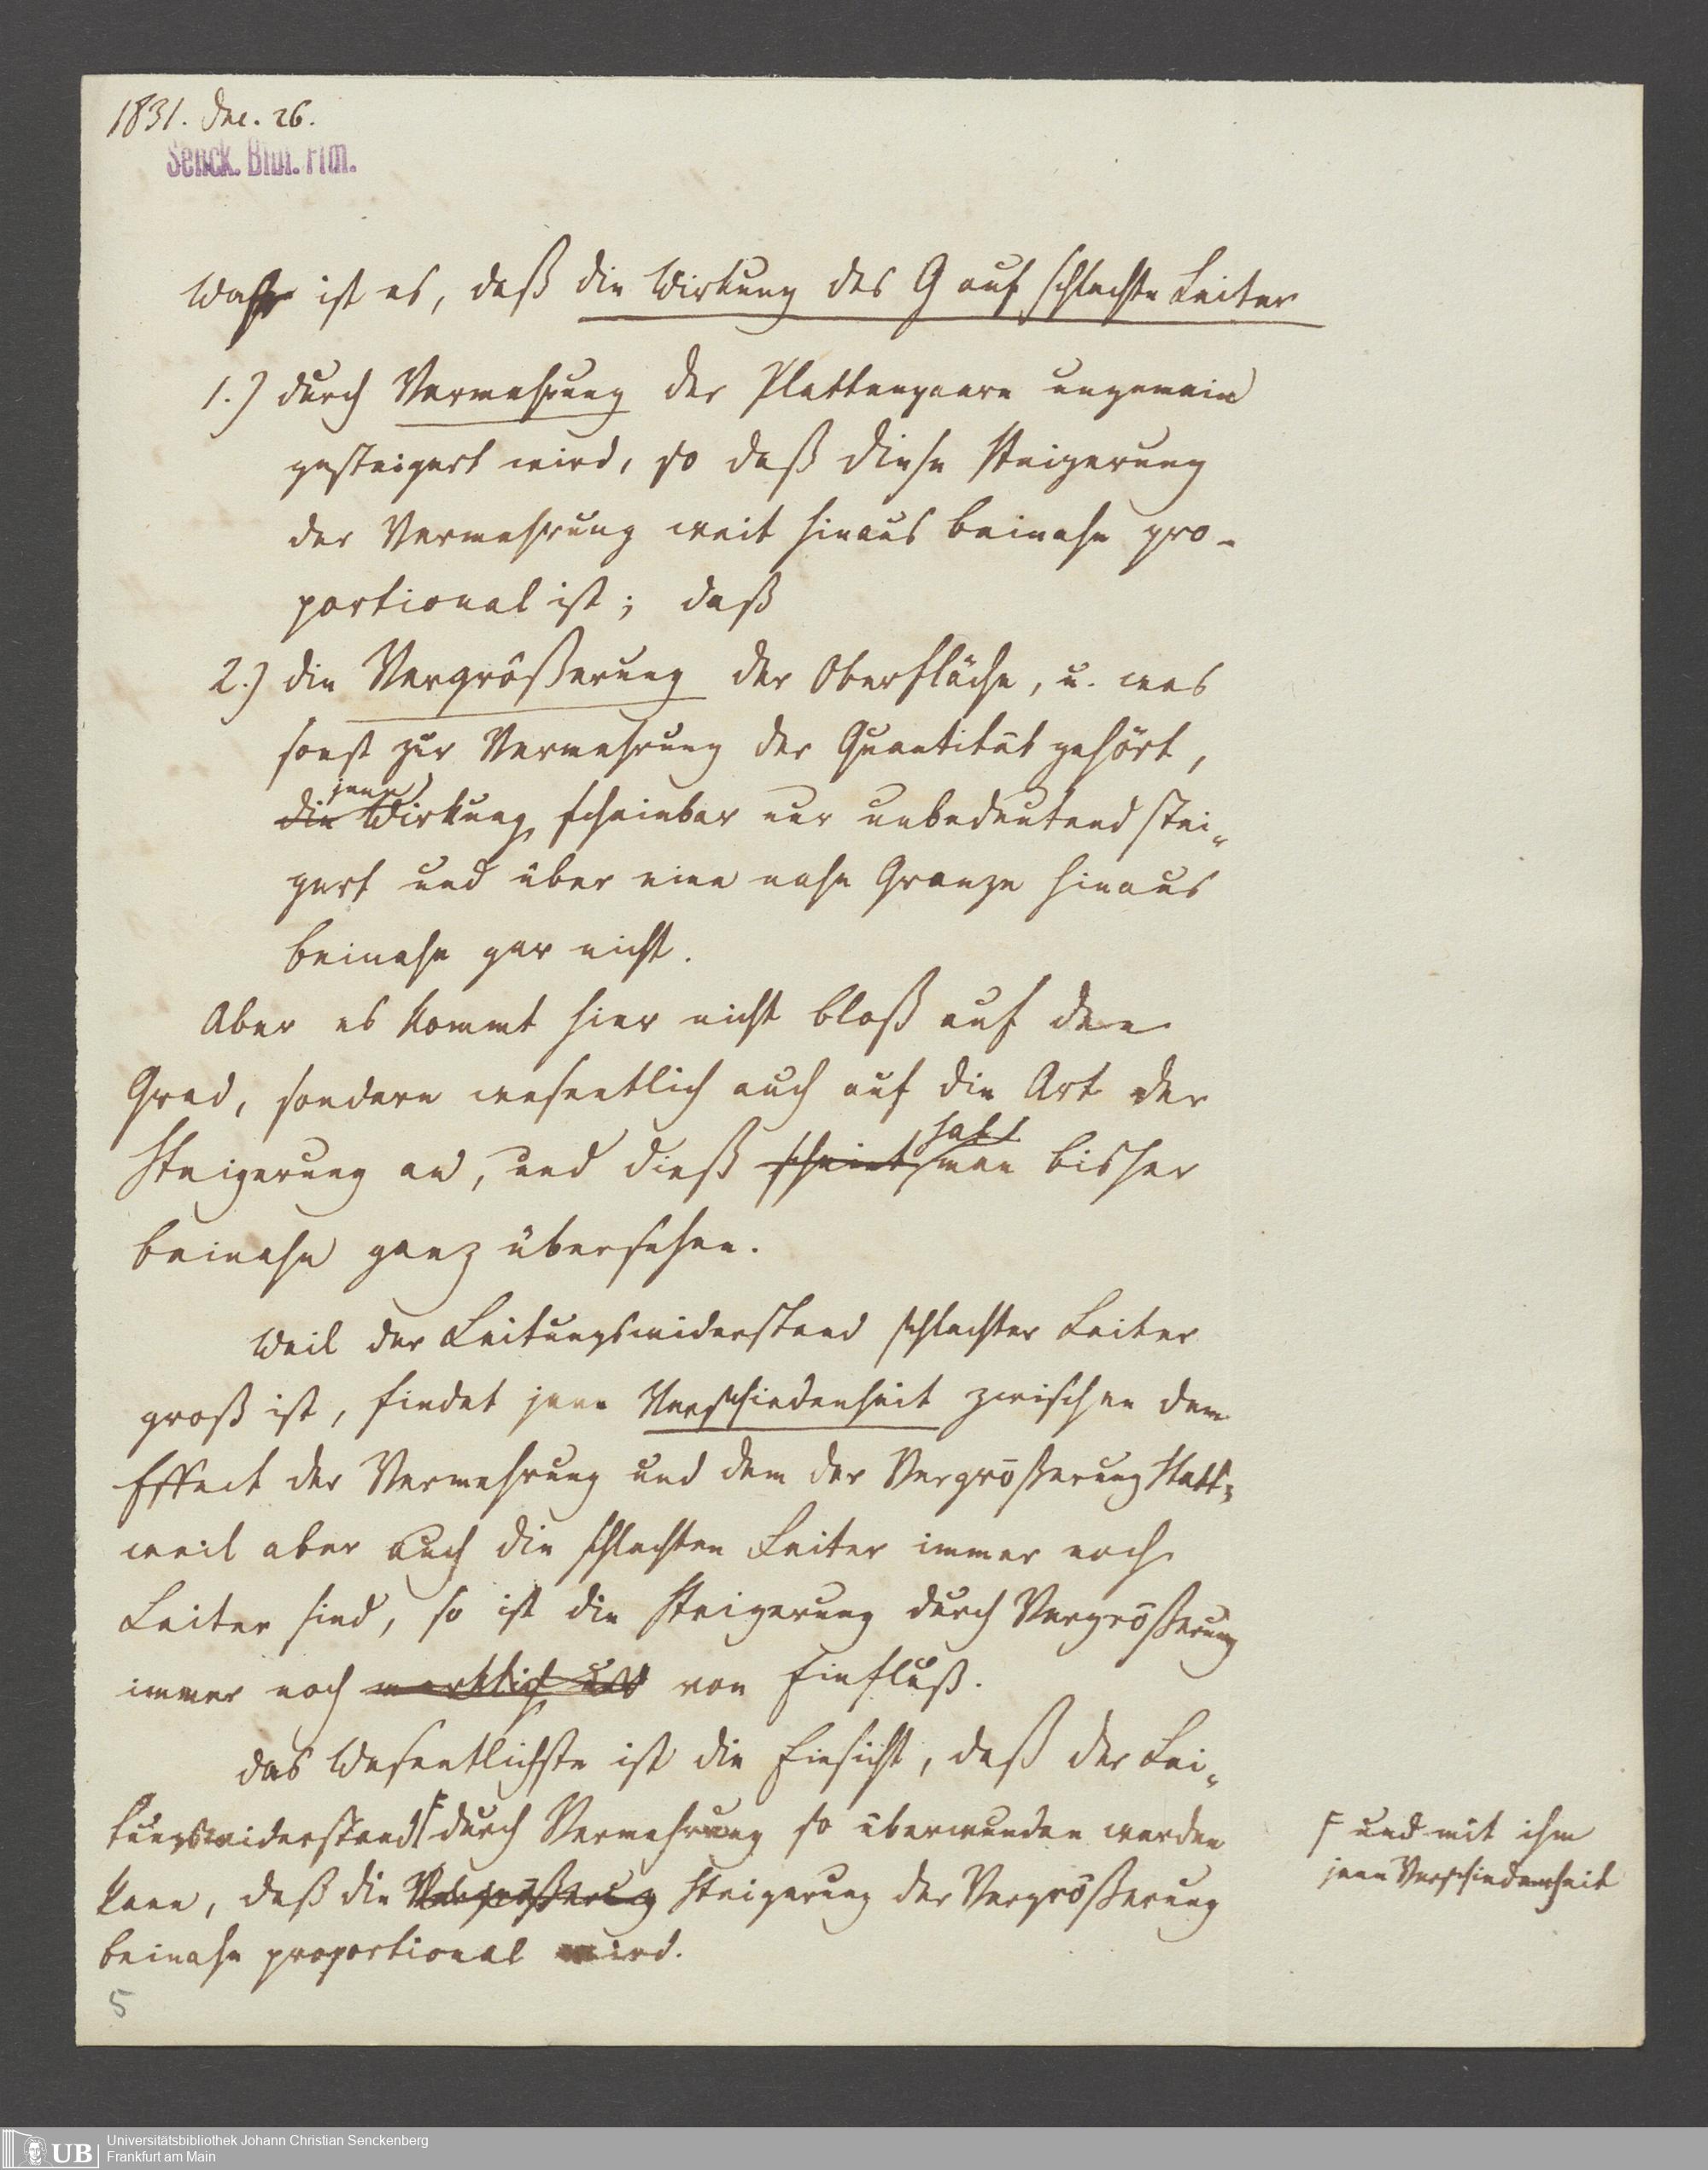 1831. Dec. 26.
Senck. Bibl. Ffm.
Wahr ist es, daß die Wirkung des G auf schlechte Leiter
1.) durch Vermehrung der Plattenpaare ungemein
gesteigert wird, so daß diese Steigerung
der Vermehrung weit hinaus beinahe pro-
portional ist; daß
2.) die Vergrößerung der Oberfläche, u. was
sonst zur Vermehrung der Quantität gehört,
jene
die Wirkung scheinbar nur unbedeutend stei-
gert und über eine nahe Gränze hinaus
beinahe gar nicht.
Aber es kommt hier nicht bloß auf den
Grad, sondern wesentlich auch auf die Art der
hatt
Steigerung an, und dieß scheint man bisher
beinahe ganz übersehen.
Weil der Leitungswiderstand schlechter Leiter
groß ist, findet jene Verschiedenheit zwischen dem
Effect der Vermehrung und dem der Vergrößerung Statt;
weil aber auch die schlechten Leiter immer noch
Leiter sind, so ist die Steigerung durch Vergrößerung
immer noch merklich und von Einfluß.
Das Wesentlichste ist die Einsicht, daß der Lei-
tungswiderstand F durch Vermehrung so überwunden werden
kann, daß die Vergrößerung Steigerung der Vergrößerung
beinahe proportional wird.
F und mit ihm
jene Verschiedenheit
5
UB
Universitätsbibliothek Johann Christian Senckenberg
Frankfurt am Main